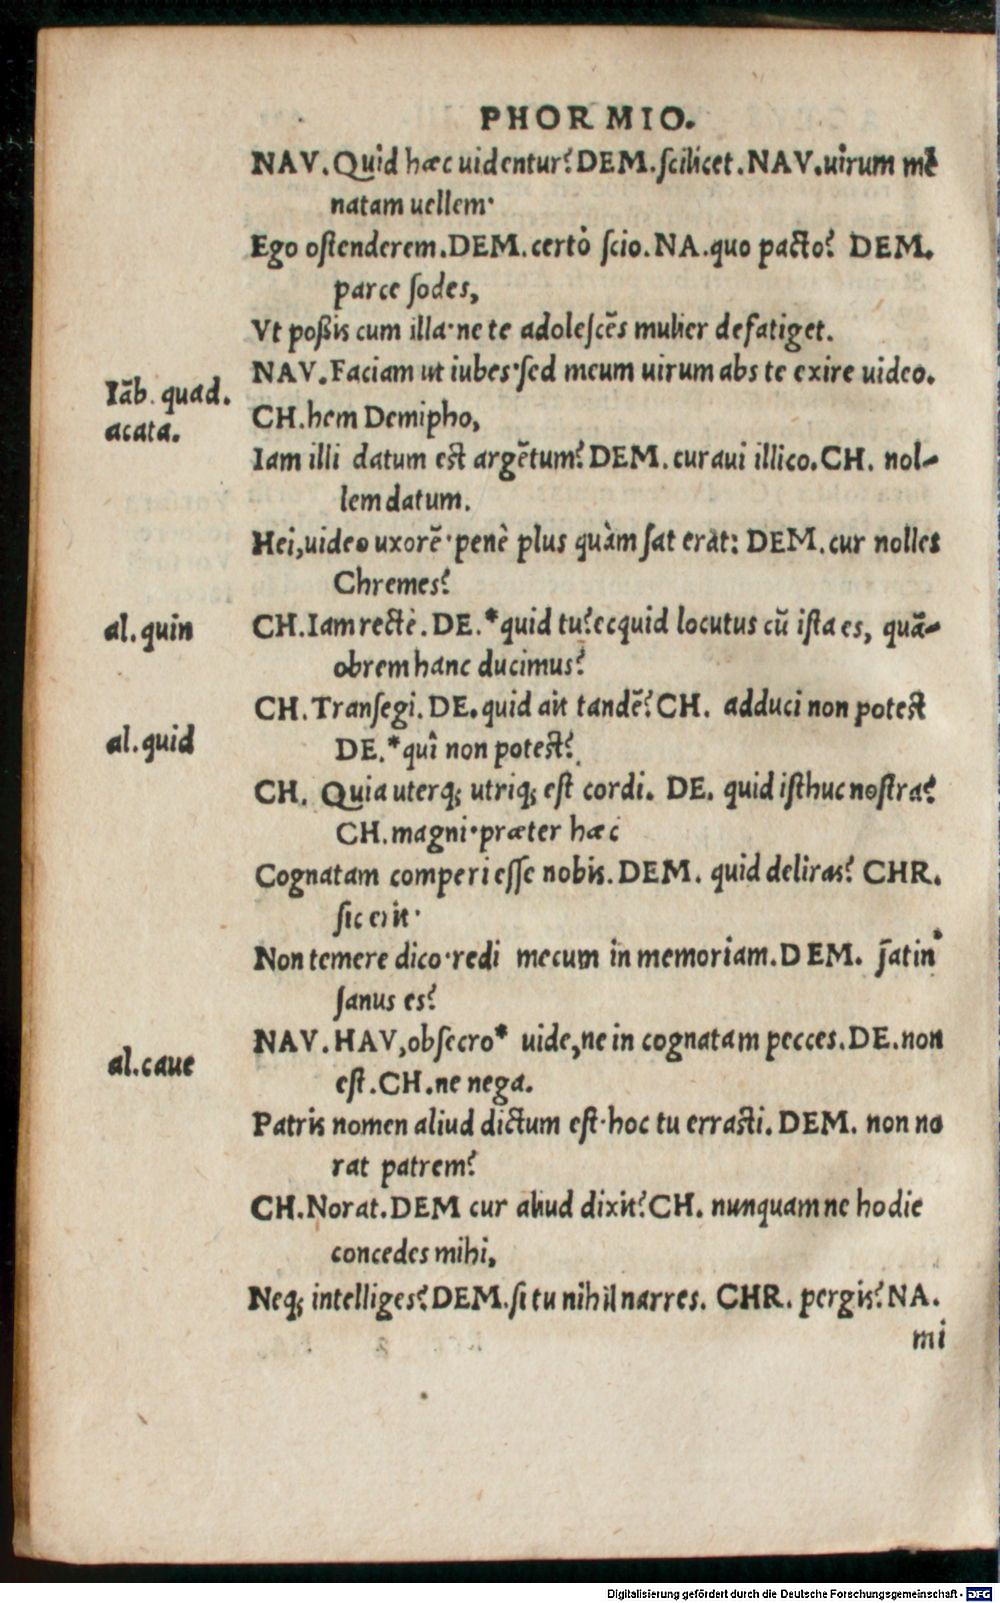 PHORMIO.
NAV. Quid hæc uidentur? DEM. ſcilicet. NAV. uirum mē
natam uellem·
Ego oſtenderem. DEM. certò ſcio. NA. quo pacto? DEM.
parce ſodes,
Vt poßis cum illa· ne te adoleſcēs mulier defatiget.
NAV. Faciam ut iubes· ſed meum uirum abs te exire uideo.
Iāb. quad.
acata.
CH. hem Demipho,
Iam illi datum est argētum? DEM. curaui illico. CH. nol-
lem datum.
Hei, uideo uxorē· penè plus quàm ſat erat: DEM. cur nolles
Chremes?
al. quin
CH. Iam rectè. DE. *quid tu? ecquid locutus cū iſta es, quā-
obrem hanc ducimus?
CH. Tranſegi. DE. quid ait tandē? CH. adduci non potest
al. quid
DE. *quî non potest?
CH. Quia uterq; utriq; eſt cordi. DE. quid iſthuc noſtra?
CH. magni· præter hæc
Cognatam comperi eſſe nobis. DEM. quid deliras? CHR.
ſic erit·
Non temere dico· redi mecum in memoriam. DEM. ſatin'
ſanus es?
NAV. HAV, obſecro* uide, ne in cognatam pecces. DE. non
al. caue
eſt. CH. ne nega.
Patris nomen aliud dictum eſt· hoc tu errasti. DEM. non no
rat patrem?
CH. Norat. DEM cur aliud dixit? CH. nunquamne hodie
concedes mihi,
Neq; intelliges? DEM. ſi tu nihil narres. CHR. pergis? NA.
mi
Digitalisierung gefördert durch die Deutsche Forschungsgemeinschaft - DFG